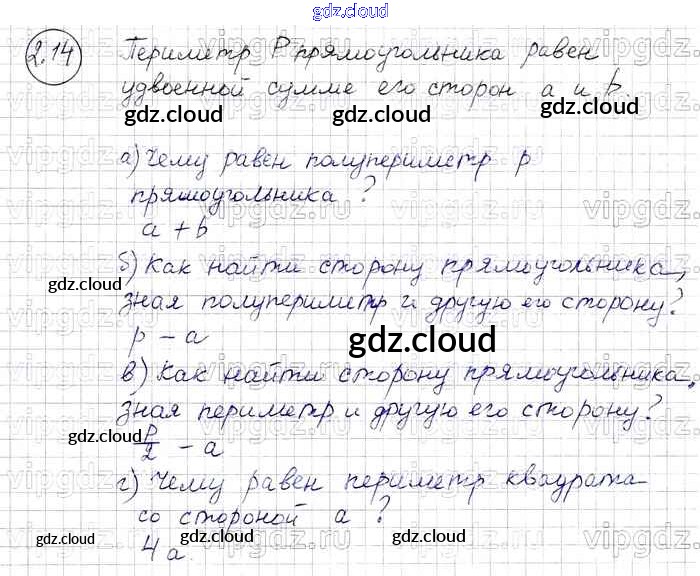 gdz.cloud
2.14 Периметр P прямоугольника равен
удвоенной сумме его сторон a и b.
gdz.cloud gdz.cloud gdz.cloud
а) Чему равен полупериметр p
прямоугольника?
gdz.cloud
a + b
б) Как найти сторону прямоугольника,
gdz.cloud
зная полупериметр и другую его сторону?
p - a
gdz.cloud
в) Как найти сторону прямоугольника,
зная периметр и другую его сторону?
gdz.cloud
P/2 - a
gdz.cloud
г) Чему равен периметр квадрата
со стороной a?
gdz.cloud gdz.cloud gdz.cloud
4a